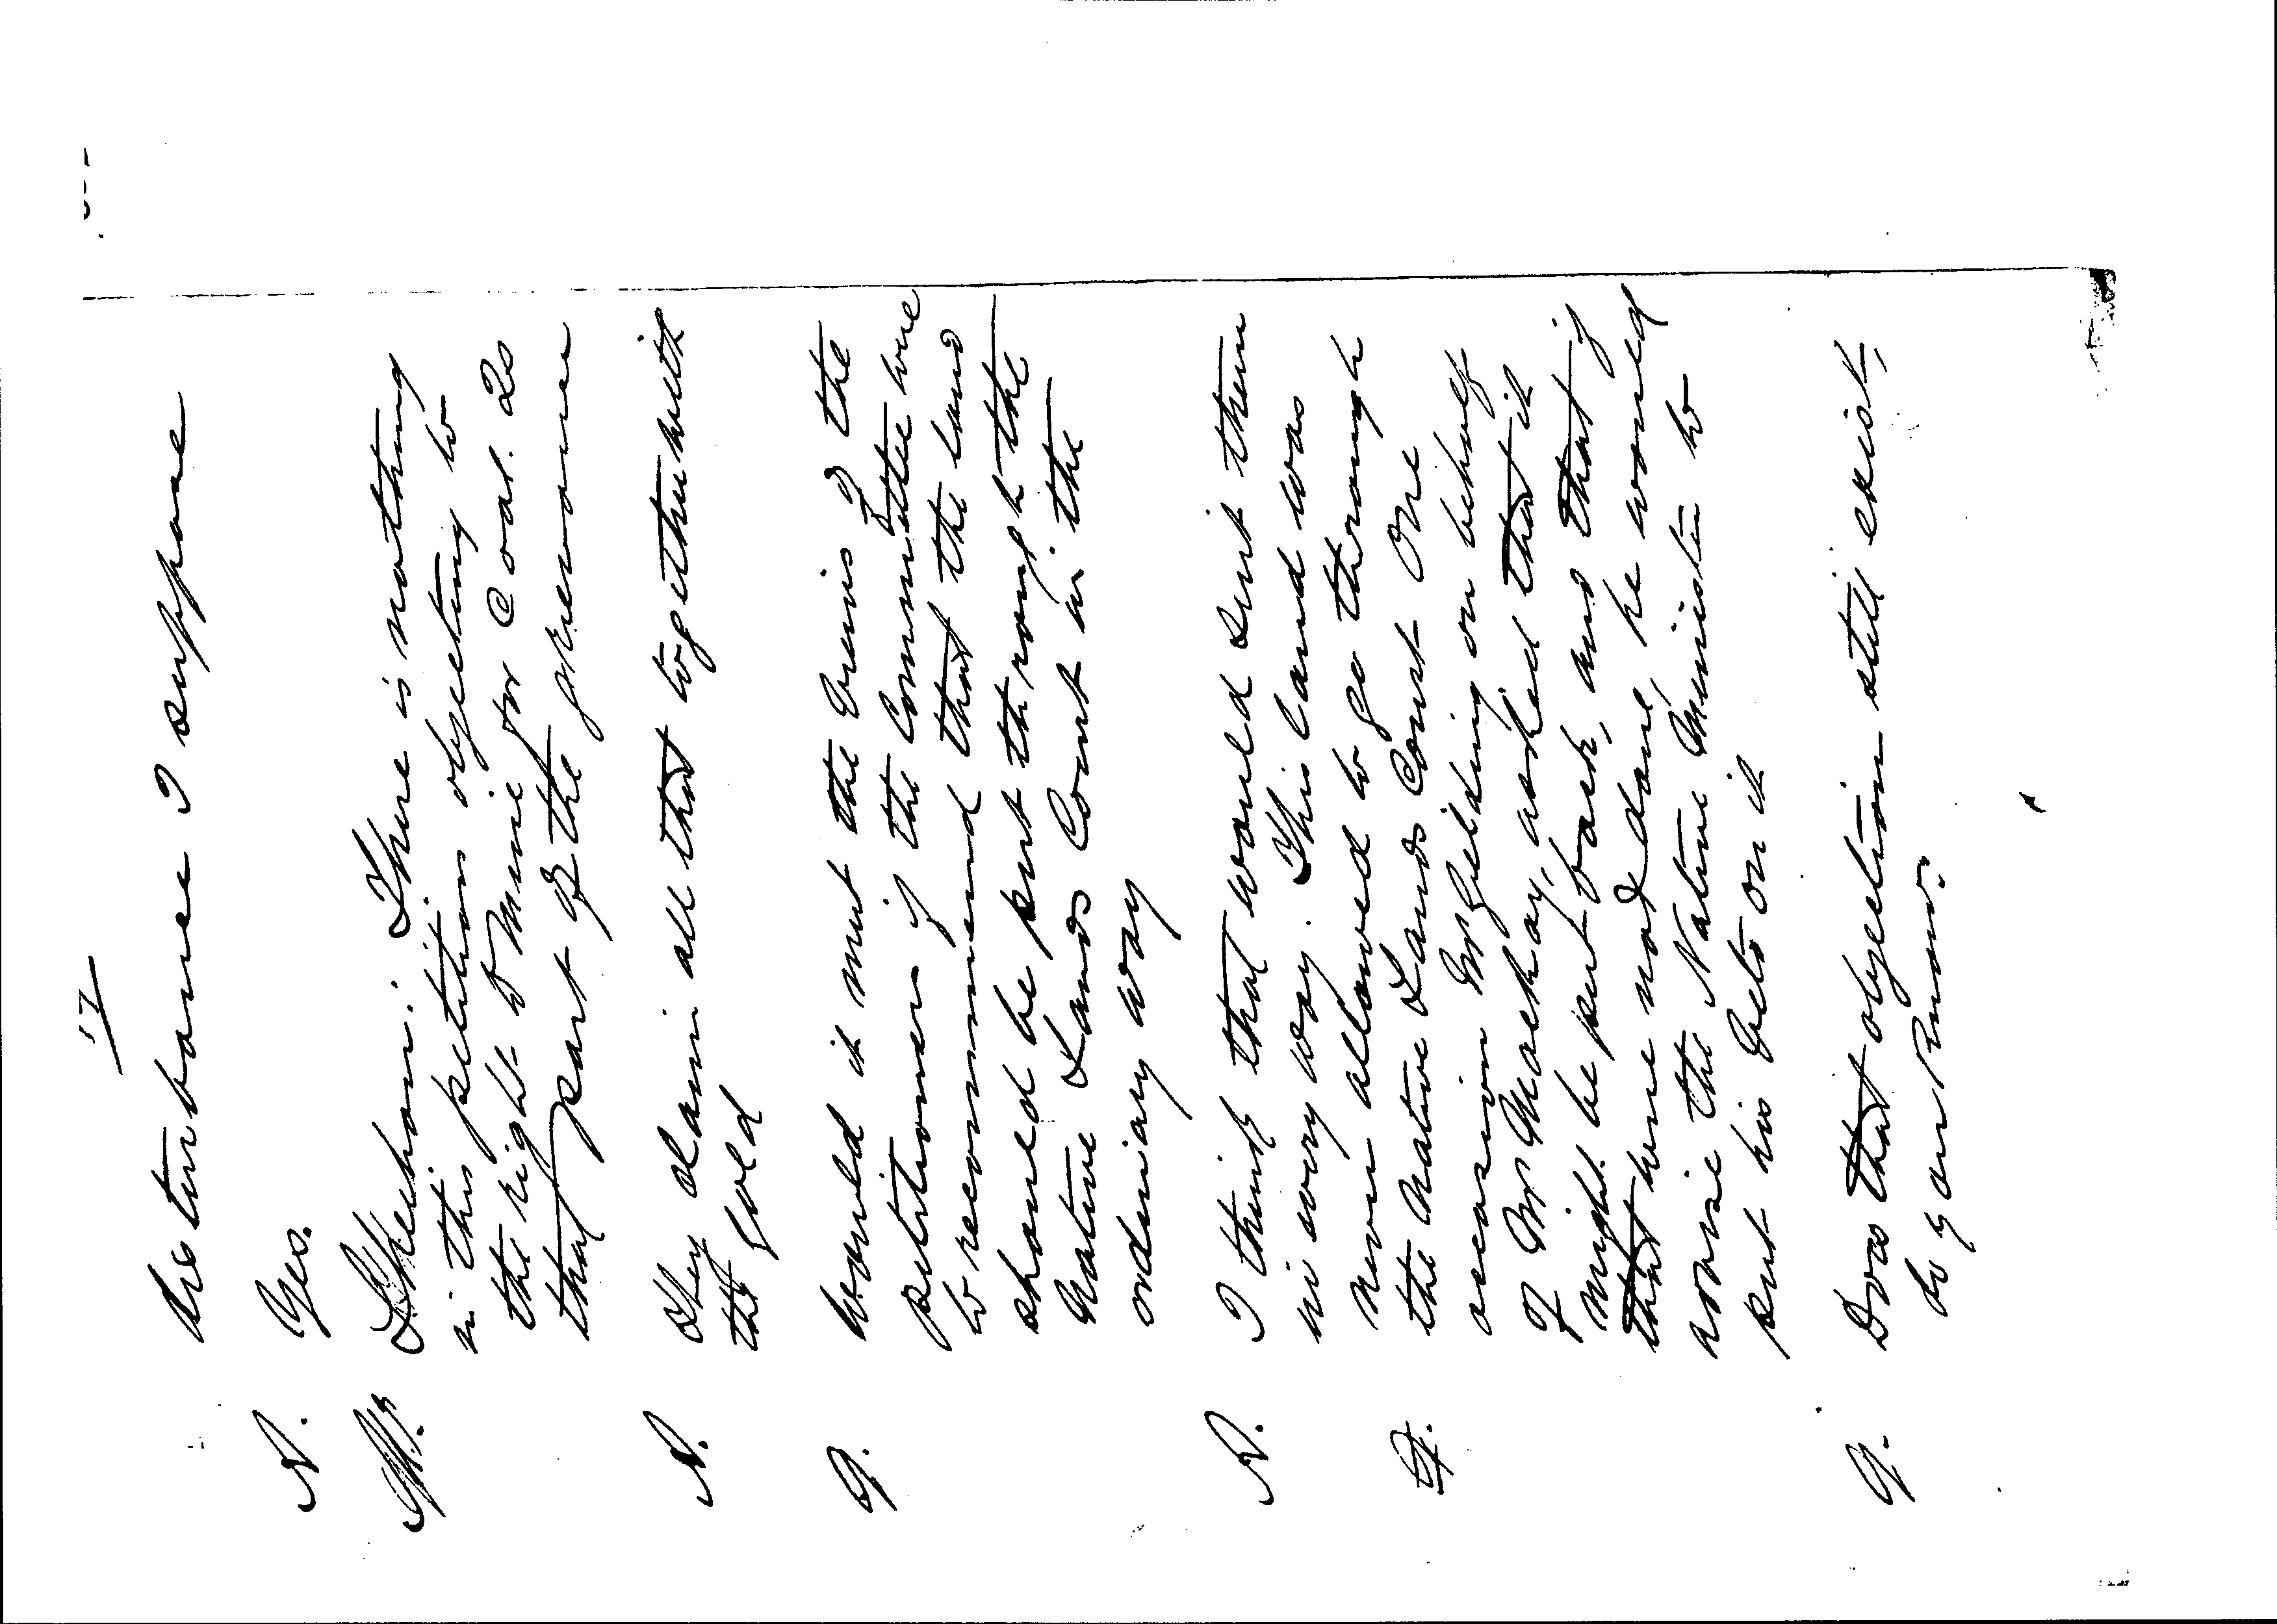 17
disturbance I suppose
A. Yes.
Mr Sheehan: There is nothing
in this petition objecting to
the right to Mine for Coal. Is
that part of the grievance
A. They claim all that together with
the Gold
Q. Would it meet the views of the
petitioners if the Committee were
to recommend that the land
should be put through the
Native Lands Court in the
ordinary way
A. I think that would suit them
in every way. This land was
never allowed to go through
the Native Lands Court One
occasion Mr Fielding on behalf
of Mr Mackay, asked that it
might be put back, and that if
that were not done, he would
advise the Native Minister to
put his Veto on it
Q. Does that objection still exist,
do you know.